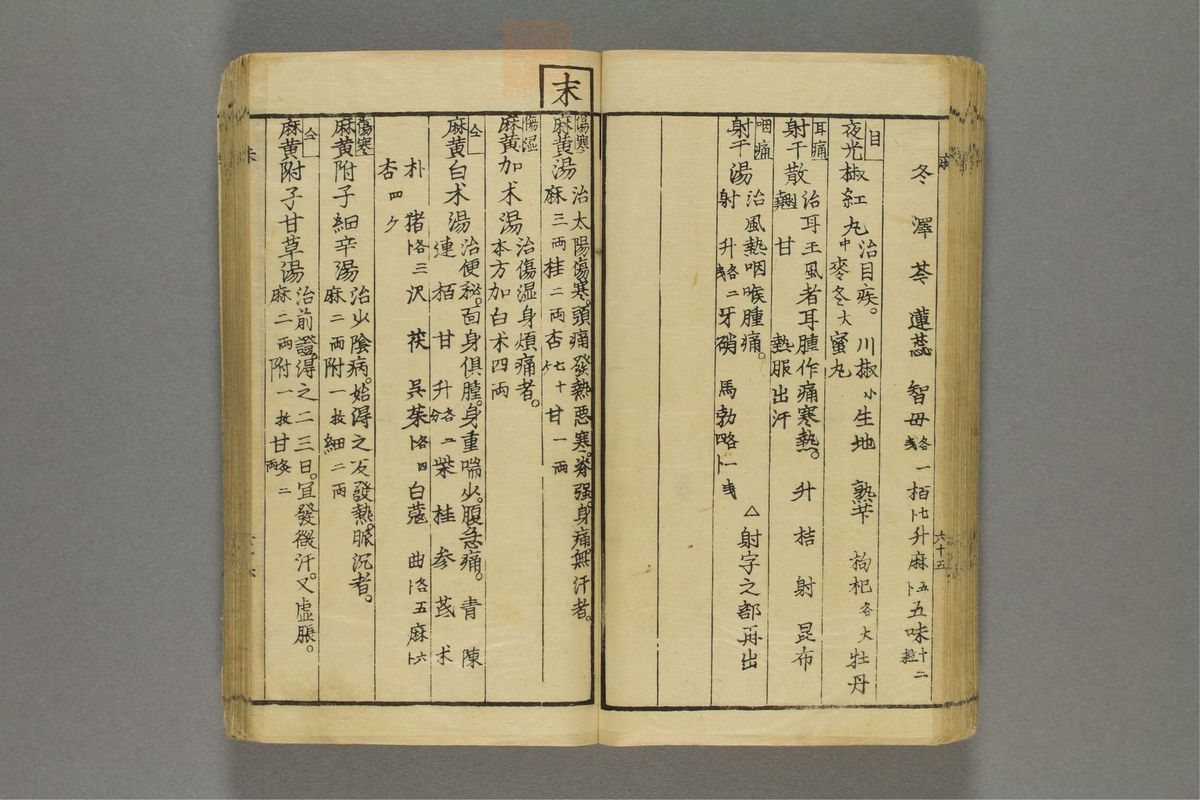 冬 澤 芩 蓮蕊 智母各一戋 栢七卜 升麻五卜 五味十二粒
目
夜光椒紅丸 治目疾。 川椒小 生地 熟芐 枸杞各大 牡丹
中 麥冬大 蜜丸
耳痛
射干散 治耳王風者耳腫作痛寒熱。 升 桔 射 昆布
翹 甘 熱服出汗
咽痛
射干湯 治風熱咽喉腫痛。
射 升各二戋 牙硝 馬勃各一戋
△射字之部再出
六十五
末
傷寒
麻黄湯 治太陽傷寒。頭痛發熱悪寒。脊强。身痛。無汗者。
麻三両 桂二両 杏七十ケ 甘一両
傷湿
麻黄加术湯 治傷湿身煩痛者。
本方加白术四両
仝
麻黄白术湯 治便秘。面身俱腫。身重喘少。腹急痛。 青 陳
連 栢 甘 升各二分 柴 桂 参 芪 术
朴 猪各三卜 沢 茯 呉茱各四卜 白蔻 曲各五卜 麻六卜
杏四ケ
傷寒
麻黄附子細辛湯 治少陰病。始得之反發熱。脈沉者。
麻二両 附一枚 細二両
仝
麻黄附子甘草湯 治前證。得之二三日。宜發微汗。又虚脹。
麻二両 附一枚 甘炙二両